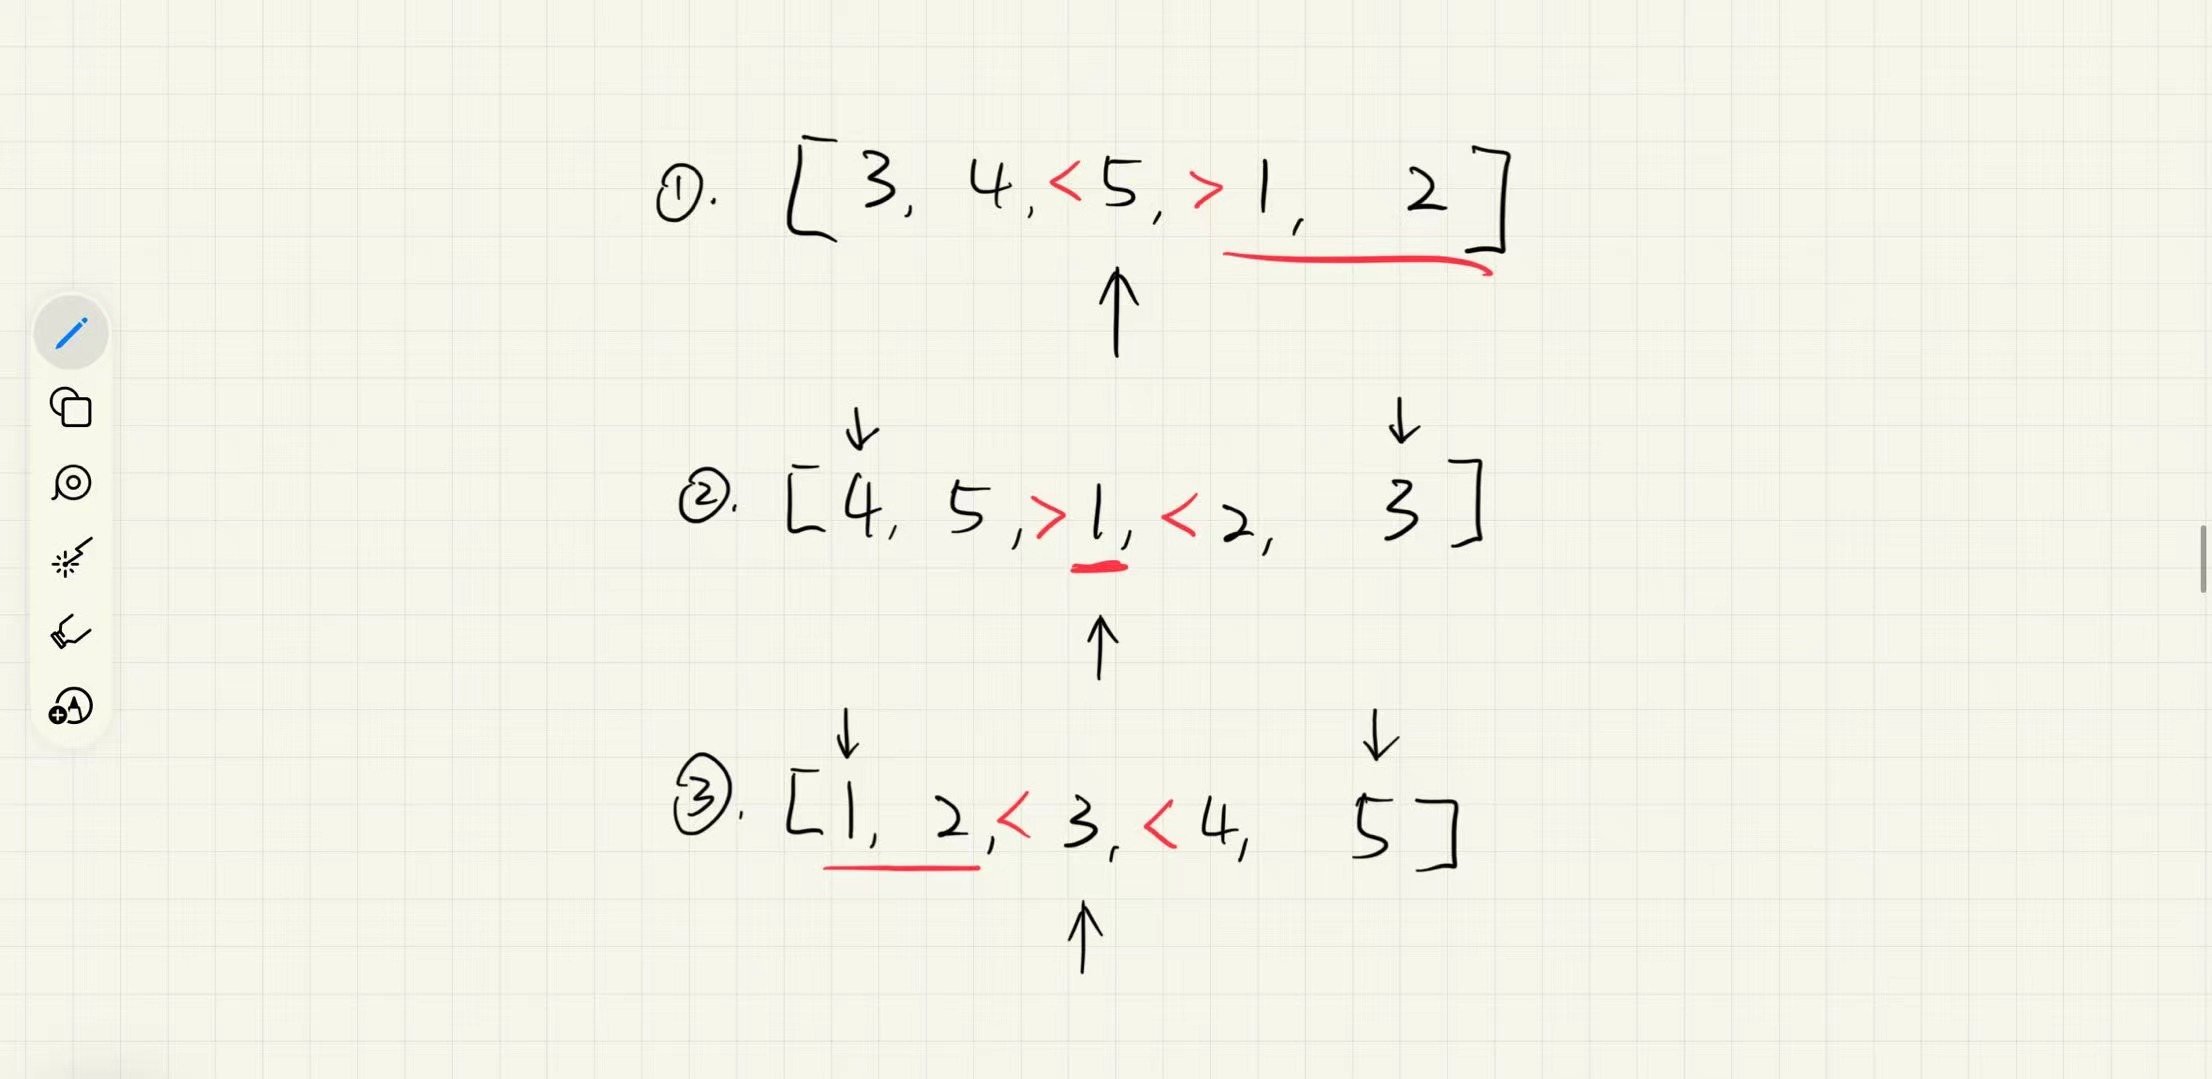 ①. [3, 4, < 5, > 1, 2]
②. [4, 5, > 1, < 2, 3]
③. [1, 2, < 3, < 4, 5]